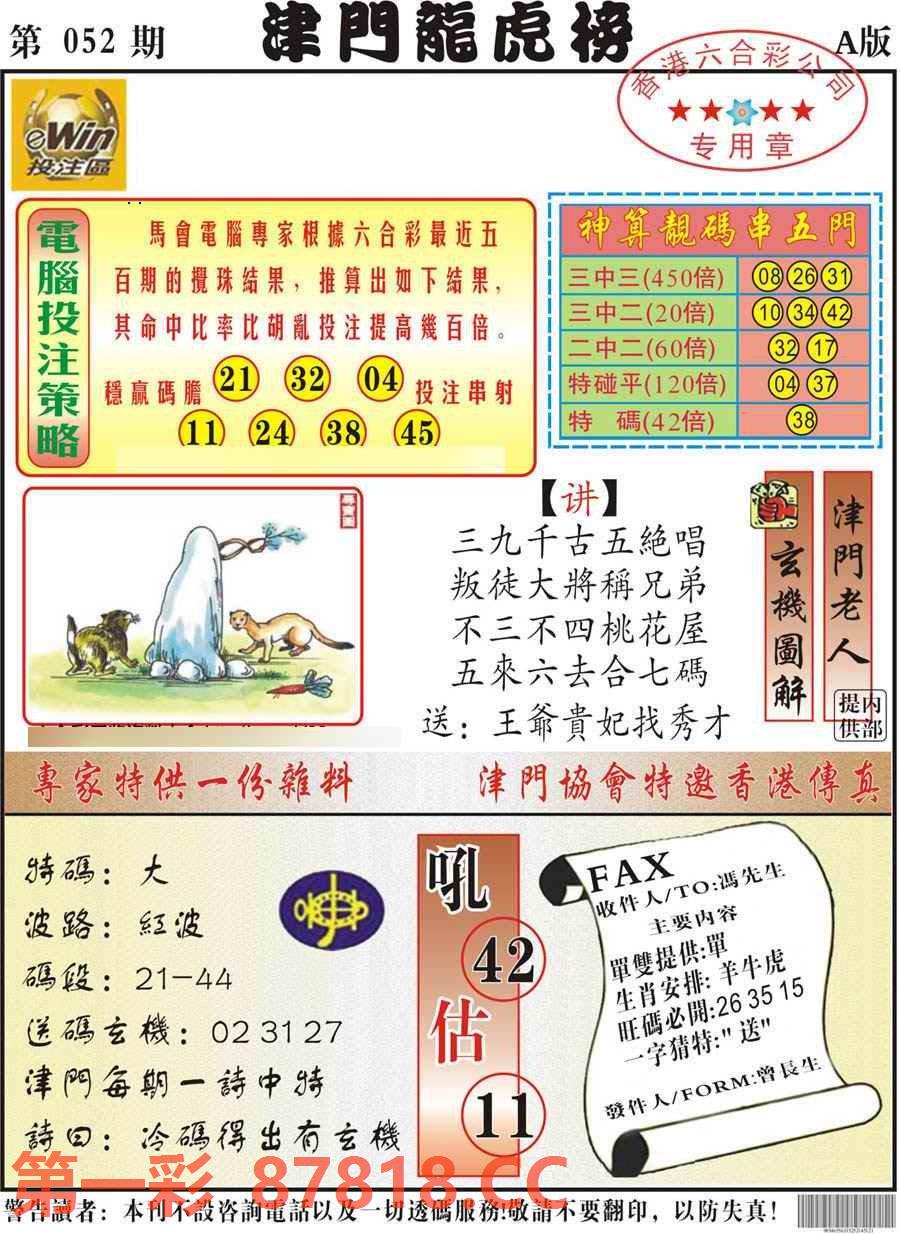 第 052 期
津門龍虎榜
A版
香港六合彩公司
专用章
eWin
投注區
電腦投注策略
馬會電腦專家根據六合彩最近五
百期的攪珠結果，推算出如下結果，
其命中比率比胡亂投注提高幾百倍。
穩贏碼膽 21 32 04 投注串射
11 24 38 45
神算靚碼串五門
三中三(450倍) 08 26 31
三中二(20倍) 10 34 42
二中二(60倍) 32 17
特碰平(120倍) 04 37
特 碼(42倍) 38
【讲】
三九千古五絕唱
叛徒大將稱兄弟
不三不四桃花屋
五來六去合七碼
送：王爺貴妃找秀才
玄機圖解
津門老人
提供
内部
專家特供一份雜料
津門協會特邀香港傳真
特碼：大
波路：紅波
碼段：21—44
送碼玄機：02 31 27
津門每期一詩中特
詩曰：冷碼得出有玄機
吼
42
估
11
FAX
收件人/TO:馮先生
主要内容
單雙提供:單
生肖安排: 羊牛虎
旺碼必開:26 35 15
一字猜特:"送"
發件人/FORM:曾長生
第一彩 87818.CC
警告讀者：本刊不設咨詢電話以及一切透碼服務!敬請不要翻印，以防失真!